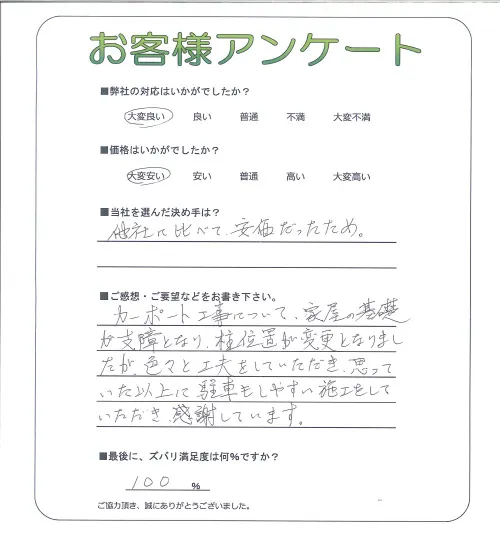 お客様アンケート
■弊社の対応はいかがでしたか？
大変良い 良い 普通 不満 大変不満
■価格はいかがでしたか？
大変安い 安い 普通 高い 大変高い
■当社を選んだ決め手は？
他社に比べて、安価だったため。
■ご感想・ご要望などをお書き下さい。
カーポート工事について、家屋の基礎
が支障となり、柱位置が変更となりまし
たが、色々と工夫をしていただき、思って
いた以上に駐車もしやすい施工をして
いただき、感謝しています。
■最後に、ズバリ満足度は何％ですか？
100 ％
ご協力頂き、誠にありがとうございました。